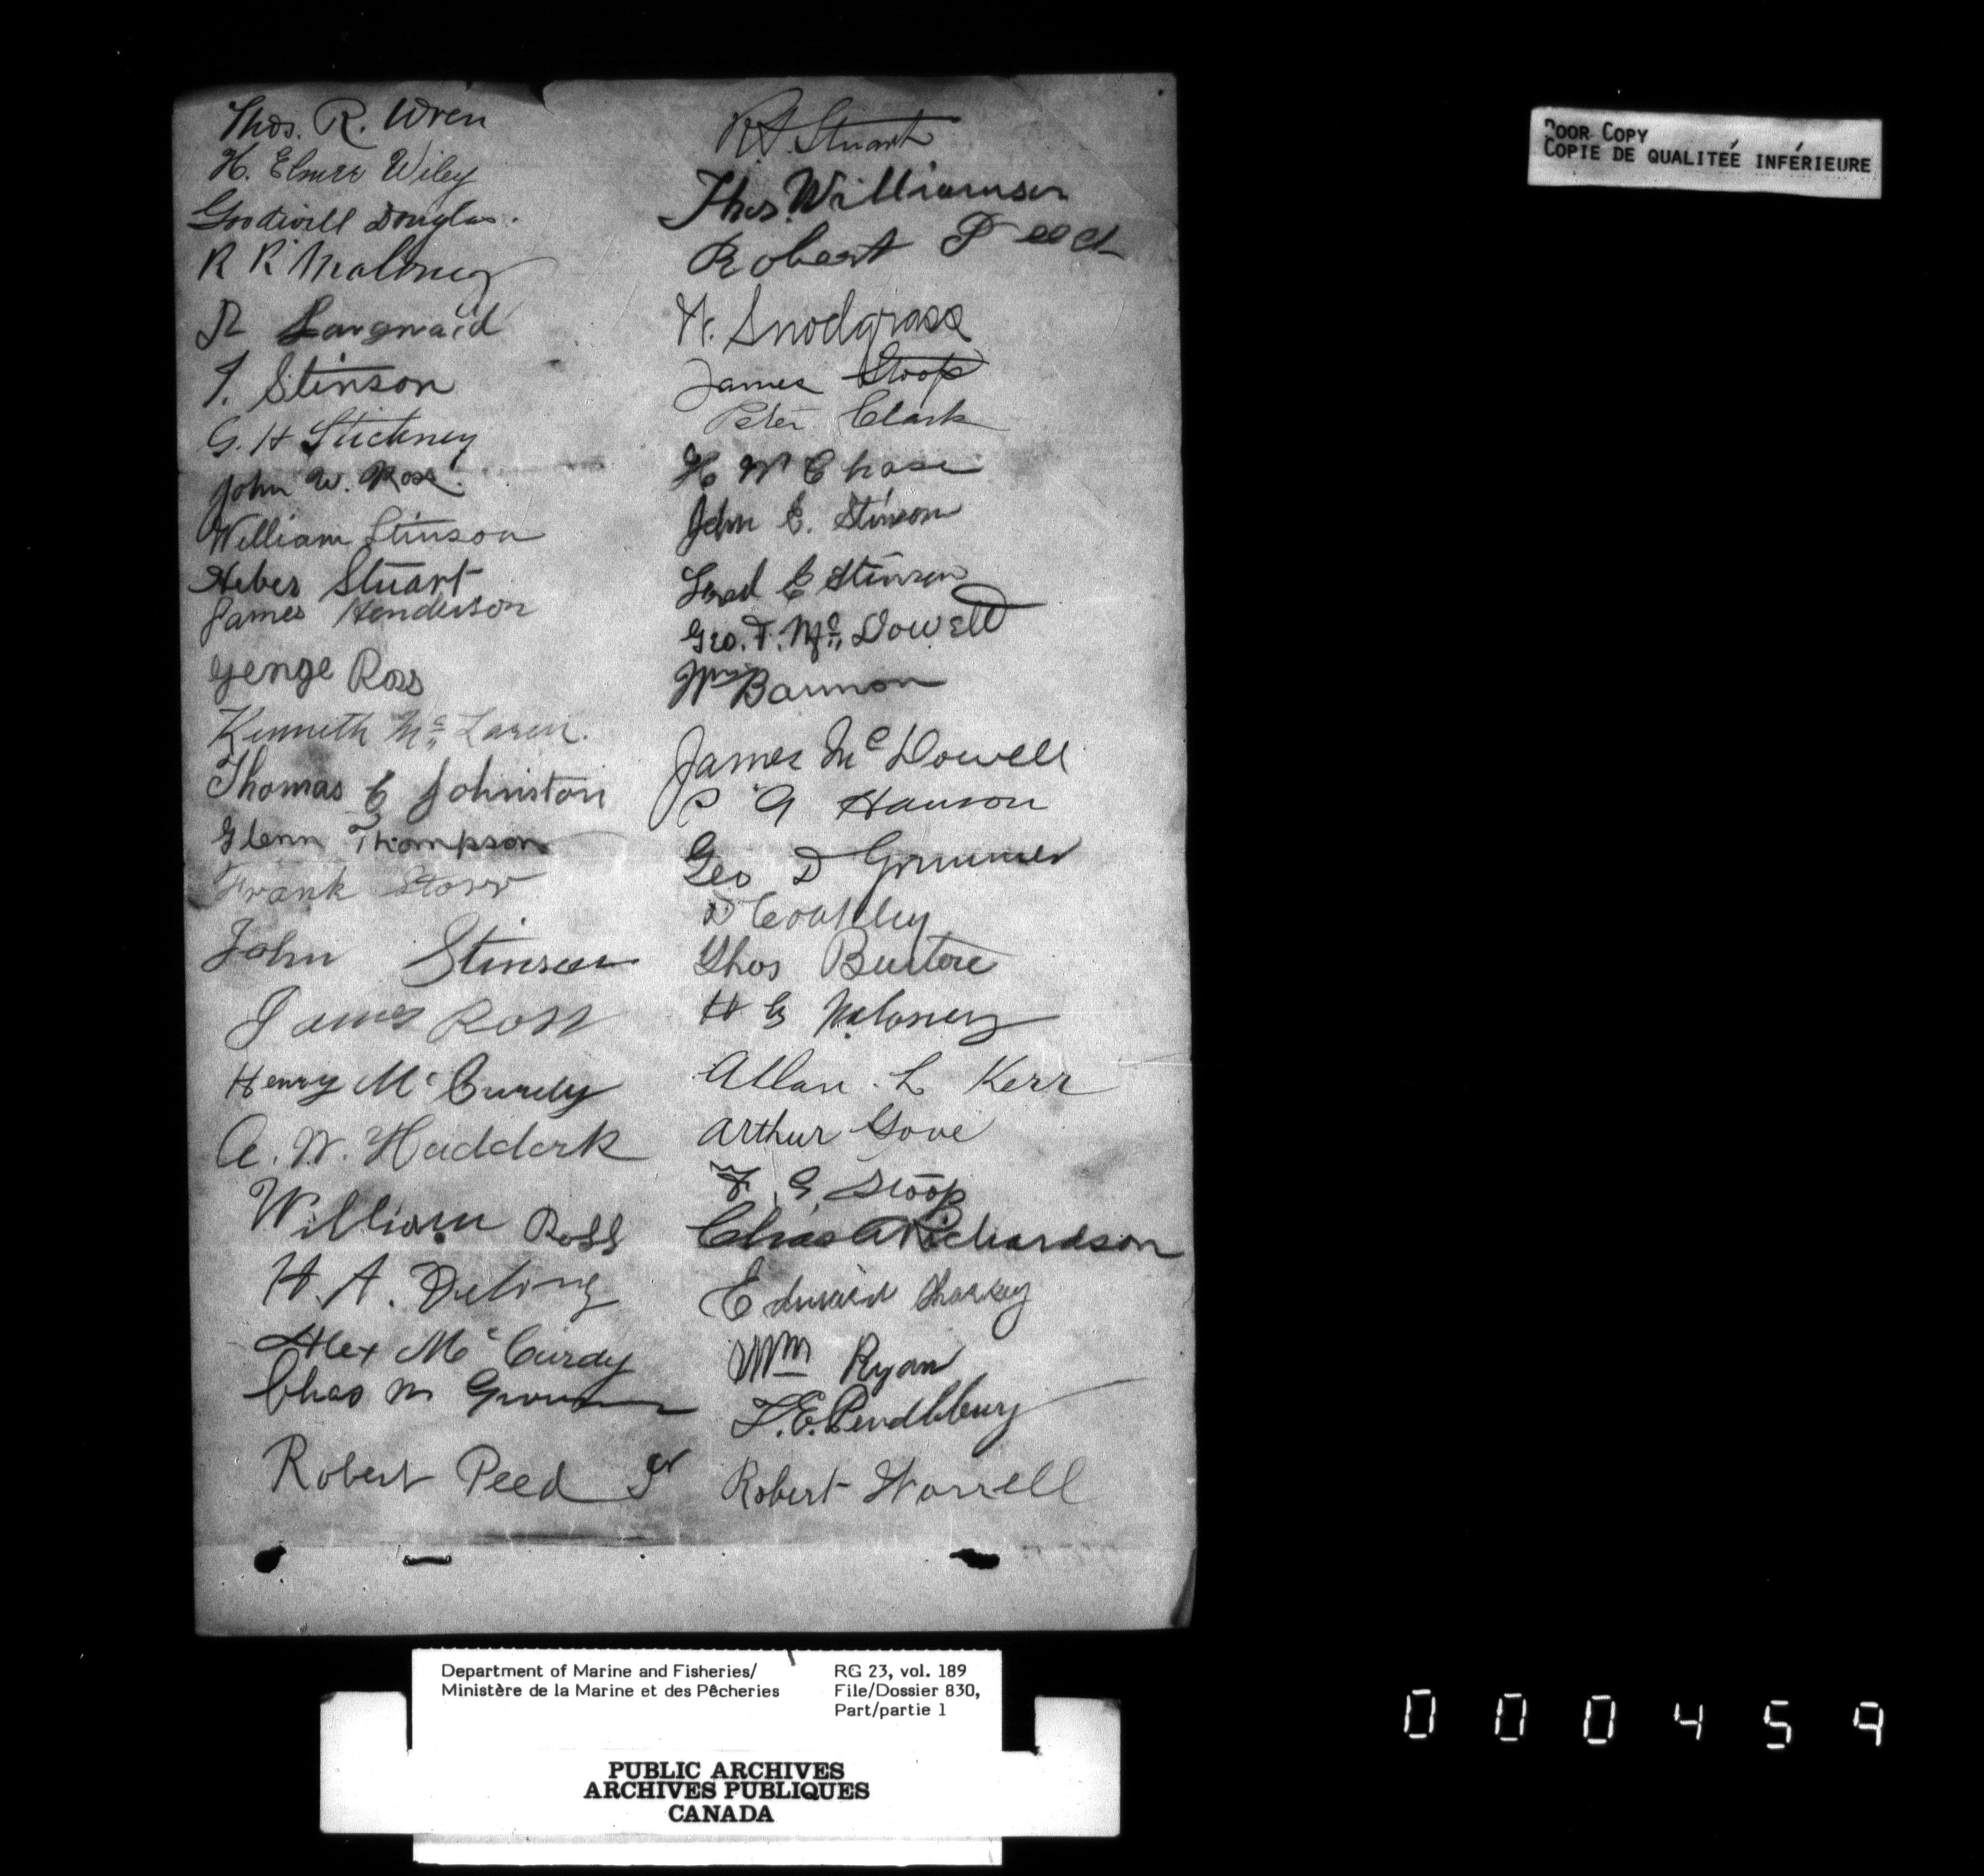 Thos. R. Wren
H. Elmer Wiley
Goodwill Douglas.
R R Maloney
R Langmaid
T. Stinson
G. H Stickney
John W. Ross.
William Stinson
Heber Stuart
James Henderson
George Ross
Kenneth Mc Laren.
Thomas E Johnston
Glenn Thompson
Frank Storr
John Stinson
James Ross
Henry Mc Curdy
A. W. Haddock
William Ross
H. A.
Alex Mc Curdy
Chas M
Robert Peed Sr
R. A. Stuart
Thos. Williamson
Robert Peed
W. Snodgrass
James Stoop
Peter Clark
H W Chase
John E. Stinson
E Stinson
Geo. F. Mc Dowell
Wm
James Mc Dowell
G Hanson
Geo D Grimmer
D Coakley
Thos Burton
H G Maloney
Allan L Kerr
Arthur Gove
F. G. Stoop
Chas A Richardson
Edward Sharkey
Wm Ryan
F. E. Pendlebury
Robert Worrell
POOR COPY
COPIE DE QUALITEÉ INFÉRIEURE
Department of Marine and Fisheries/
Ministère de la Marine et des Pêcheries
RG 23, vol. 189
File/Dossier 830,
Part/partie 1
PUBLIC ARCHIVES
ARCHIVES PUBLIQUES
CANADA
000459